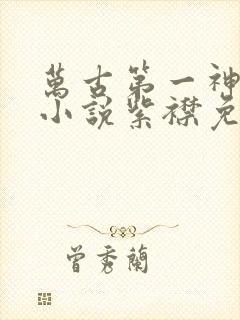 萬古第一神
小說紫襟免
曾秀蘭